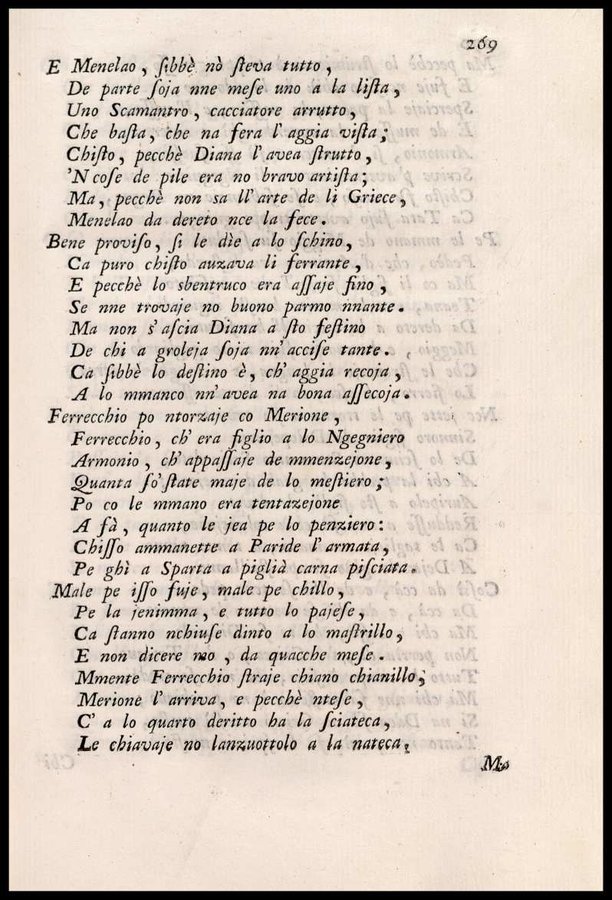 269
E Menelao, ſibbè nò ſteva tutto,
De parte ſoja nne meſe uno a la liſta,
Uno Scamantro, cacciatore arrutto,
Che baſta, che na fera l'aggia viſta;
Chiſto, pecchè Diana l'avea ſtrutto,
'N coſe de pile era no bravo artiſta;
Ma, pecchè non sa ll'arte de li Griece,
Menelao da dereto nce la fece.
Bene proviſo, ſi le dìe a lo ſchino,
Ca puro chiſto auzava li ferrante,
E pecchè lo sbentruco era aſſaje fino,
Se nne trovaje no buono parmo nnante.
Ma non s'aſcia Diana a ſto feſtino
De chi a groleja ſoja nn'acciſe tante.
Ca ſibbè lo deſtino è, ch'aggia recoja,
A lo mmanco nn'avea na bona aſſecoja.
Ferrecchio po ntorzaje co Merione,
Ferrecchio, ch'era figlio a lo Ngegniero
Armonio, ch'appaſſaje de mmenzejone,
Quanta ſo' ſtate maje de lo meſtiero;
Po co le mmano era tentazejone
A fà, quanto le jea pe lo penziero:
Chiſſo ammanette a Paride l'armata,
Pe ghì a Sparta a piglià carna piſciata.
Male pe iſſo fuje, male pe chillo,
Pe la jenimma, e tutto lo pajeſe,
Ca ſtanno nchiuſe dinto a lo maſtrillo,
E non dicere mo, da quacche meſe.
Mmente Ferrecchio ſtraje chiano chianillo,
Merione l'arriva, e pecchè nteſe,
C'a lo quarto deritto ha la ſciateca,
Le chiavaje no lanzuottolo a la nateca.
Ma